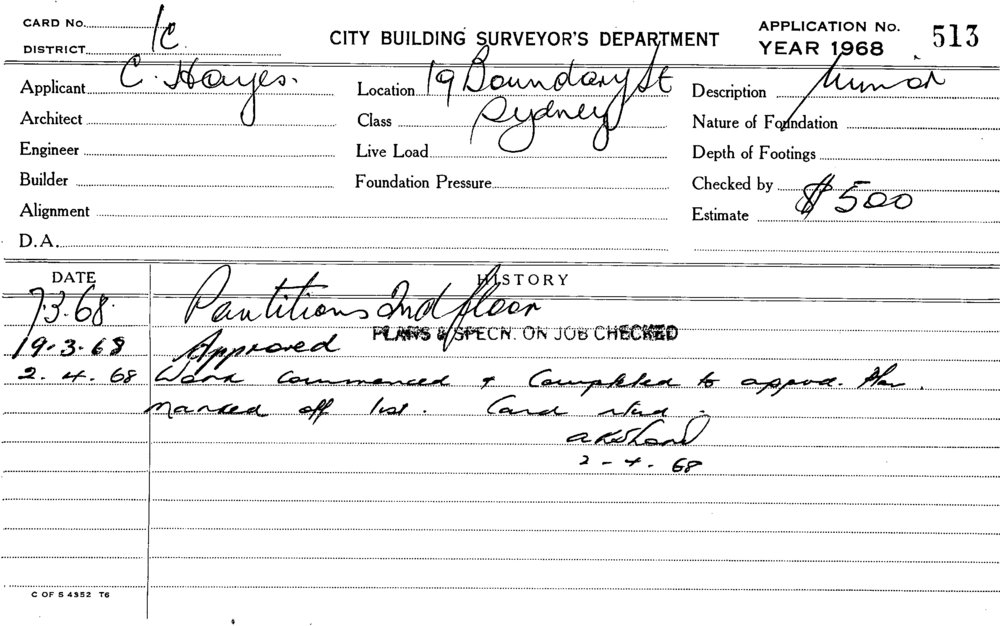 CARD No. 1C
DISTRICT
CITY BUILDING SURVEYOR'S DEPARTMENT
APPLICATION No. 513
YEAR 1968
Applicant C. Hayes.
Location 19 Boundary St
Sydney
Description Minor
Architect
Class
Nature of Foundation
Engineer
Live Load
Depth of Footings
Builder
Foundation Pressure
Checked by
Alignment
Estimate $500
D.A.
DATE HISTORY
7.3.68. Partitions 2nd floor
PLANS & SPECN. ON JOB CHECKED
19.3.68 Approved
2.4.68 Work commenced & Completed to appvd. Plan.
Marked off list. Card
2-4.68
C OF S 4352 T6